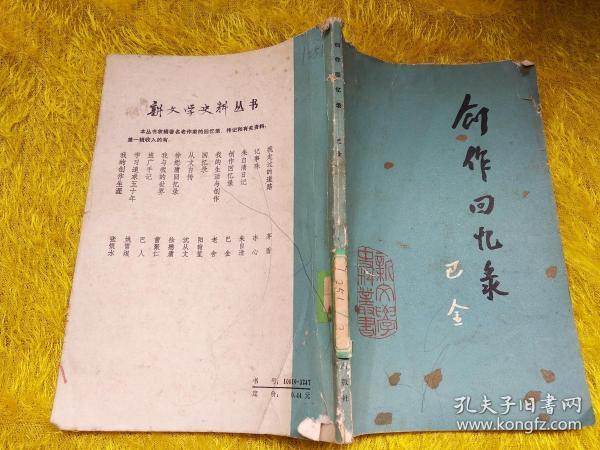 新文学史料丛书
本丛书収辑著名老作家的回忆录、传记和有关资料。
第一辑收入的有:
我走过的道路 茅盾
记事珠 冰心
朱自清日记 朱自清
创作回忆录 巴金
我的生活与创作 老舍
回忆录 阳翰笙
从文自传 沈从文
徐懋庸回忆录 徐懋庸
我与我的世界 曹聚仁
旅广手记 巴人
学习追求五十年 姚雪垠
我的创作生涯 张恨水
书号:10019·3247
定价:0.44元
创作回忆录 巴金
版社
创作回忆录
巴金
新文学
史料丛书
孔夫子旧书网
www.kongfz.com